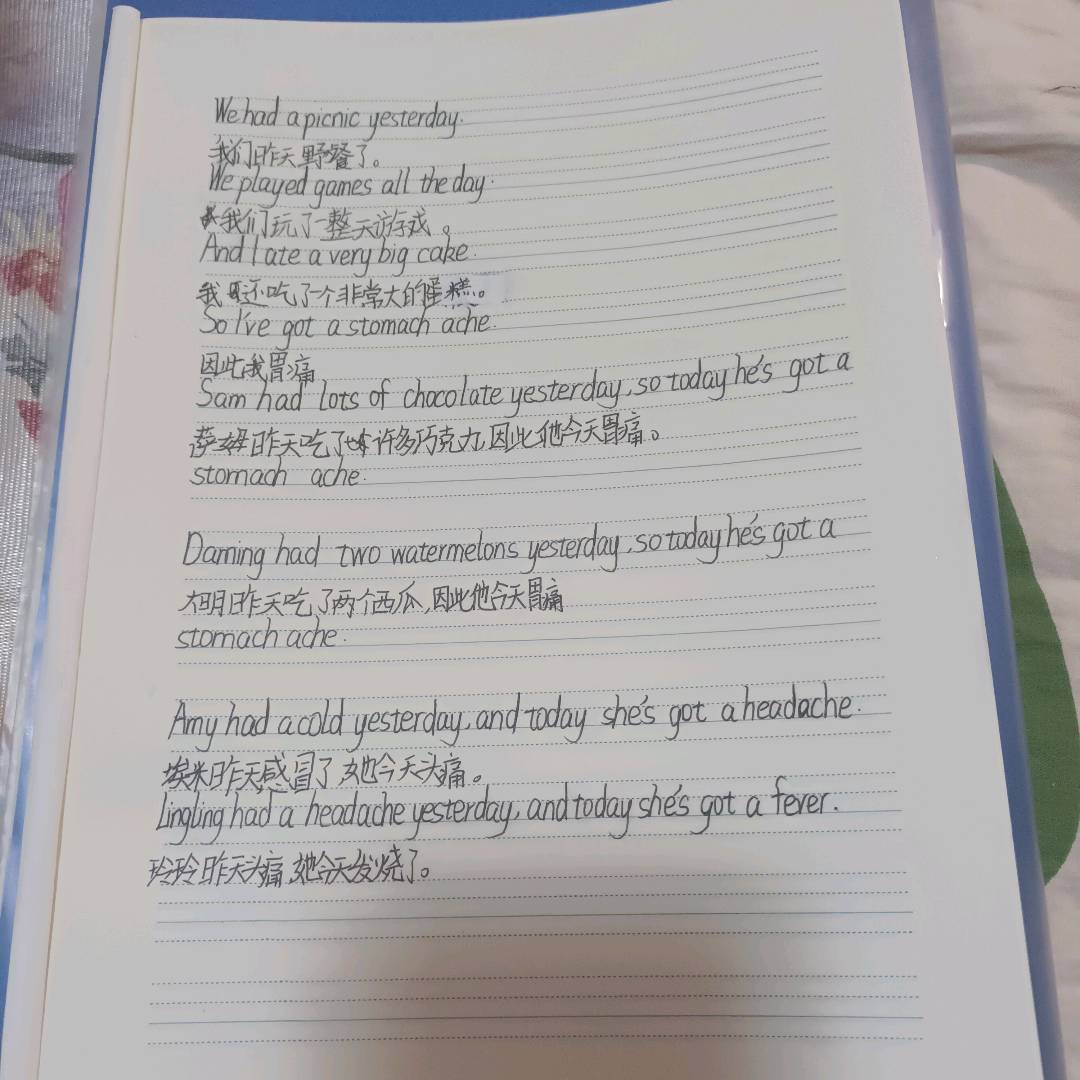 We had a picnic yesterday.
我们昨天野餐了。
We played games all the day.
我们玩了一整天游戏。
And I ate a very big cake.
我还吃了一个非常大的蛋糕。
So I've got a stomach ache.
因此我胃痛
Sam had lots of chocolate yesterday, so today he's got a
萨姆昨天吃了许多巧克力,因此他今天胃痛。
stomach ache.
Daming had two watermelons yesterday, so today he's got a
大明昨天吃了两个西瓜,因此他今天胃痛
stomach ache.
Amy had a cold yesterday, and today she's got a headache.
埃米昨天感冒了,她今天头痛。
Lingling had a headache yesterday, and today she's got a fever.
玲玲昨天头痛,她今天发烧了。